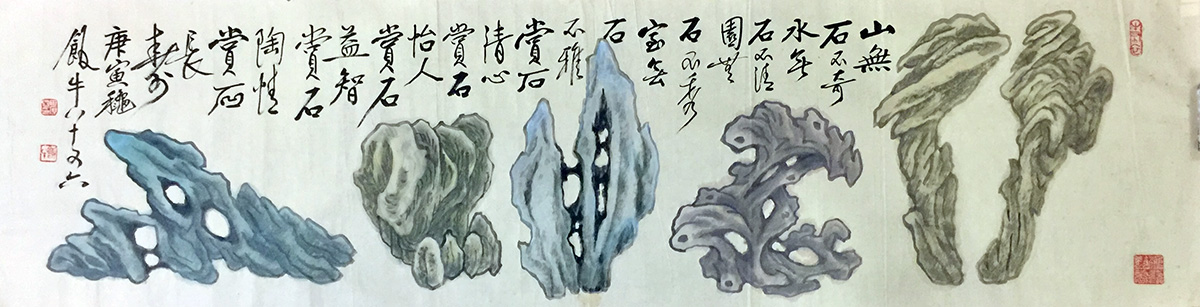 山無
石不奇
水無
石不清
園無
石不秀
室無
石
不雅
賞石
清心
賞石
怡人
賞石
益智
賞石
陶情
賞石
長
壽
庚寅穐
飯牛八十又六